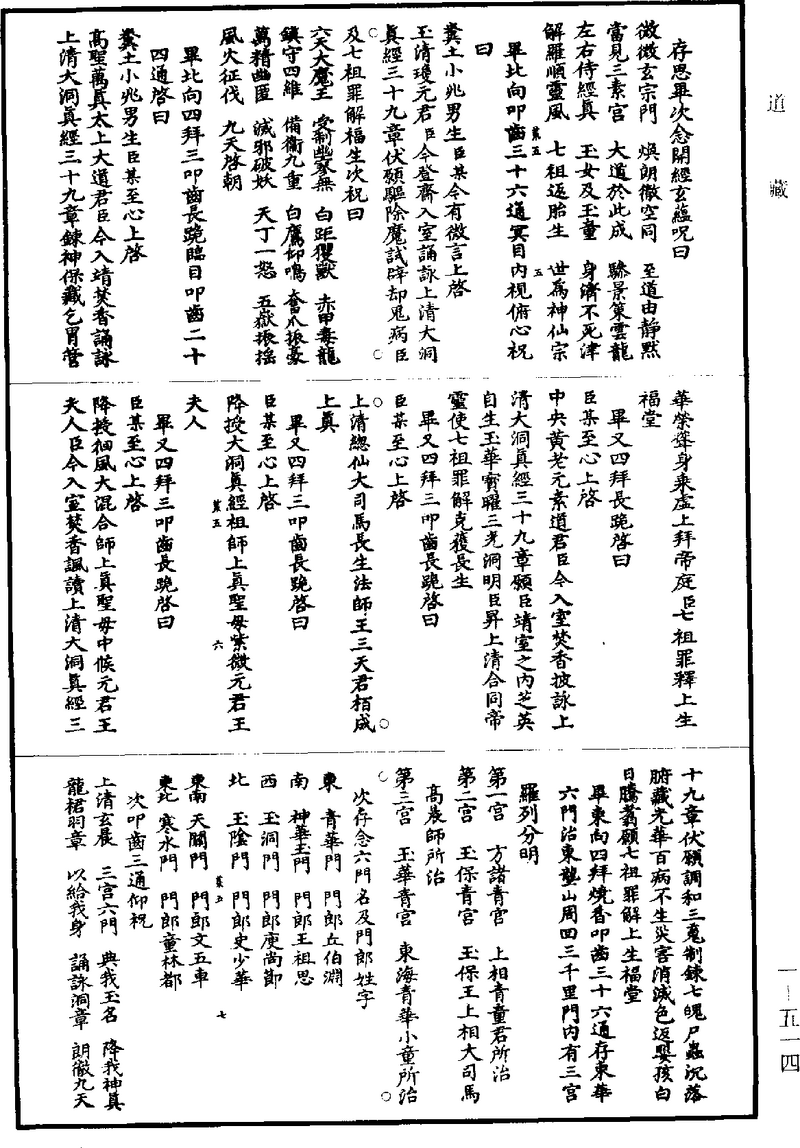 道藏
存思畢次念開經玄蘊呪曰
微微玄宗門　煥朗徹空同　至道由静默
當見三素宮　大道於此成　驂景策雲龍
左右侍經真　玉女及玉童　身濟不死津
解羅順靈風　七祖返胎生　世爲神仙宗
畢北向叩齒三十六通冥目内視俯心祝
曰
糞土小兆男生臣某今有微言上啓
玉清瓊元君臣今登齋入室誦詠上清大洞
眞經三十九章伏願驅除魔試辟却鬼病臣
及七祖罪解福生次祝曰
六天大魔王　受制幽冢無　白距玃獸　赤甲毒龍
鎮守四維　備衞九重　白鷹仰鳴　奮爪振豪
萬精幽匿　滅邪破妖　天丁一怒　五嶽振摇
風火征伐　九天啓朝
畢北向四拜三叩齒長跪臨目叩齒二十
四通啓曰
糞土小兆男生臣某至心上啓
高聖萬真太上大道君臣今入靖焚香誦詠
上清大洞眞經三十九章鍊神保藏乞胃管
華榮聳身乘虛上拜帝庭臣七祖罪釋上生
福堂
畢又四拜長跪啓曰
臣某至心上啓
中央黄老元素道君臣今入室焚香披詠上
清大洞眞經三十九章願臣靖室之内芝英
自生玉華寶曜三光洞明臣昇上清合同帝
靈使七祖罪解克獲長生
畢又四拜三叩齒長跪啓曰
臣某至心上啓
上清總仙大司馬長生法師王三天君栢成
上眞
畢又四拜三叩齒長跪啓曰
臣某至心上啓
降授大洞眞經祖師上眞聖母紫微元君王
夫人
畢又四拜三叩齒長跪啓曰
臣某至心上啓
降授徊風大混合師上眞聖母中候元君王
夫人臣今入室焚香諷讀上清大洞眞經三
十九章伏願調和三魂制鍊七魄尸蟲沉落
腑藏光華百病不生災害消滅色返嬰孩白
日騰翥願七祖罪解上生福堂
畢東向四拜燒香叩齒三十六通存東華
六門治東壟山周回三千里門内有三宫
羅列分明
第一宮　方諸青宮　上相青童君所治
第二宮　玉保青宮　玉保王上相大司馬
高晨師所治
第三宮　玉華青宮　東海青華小童所治
次存念六門名及門郎姓字
東　青華門　門郎丘伯淵
南　神華玉門　門郎王祖思
西　玉洞門　門郎庾尚節
北　玉陰門　門郎史少華
東南　天關門　門郎文五車
東北　寒水門　門郎童林都
次叩齒三通仰祝
上清玄晨　三宫六門　典我玉名　降我神真
龍裙羽章　以給我身　誦詠洞章　朗徹九天
一―五一四